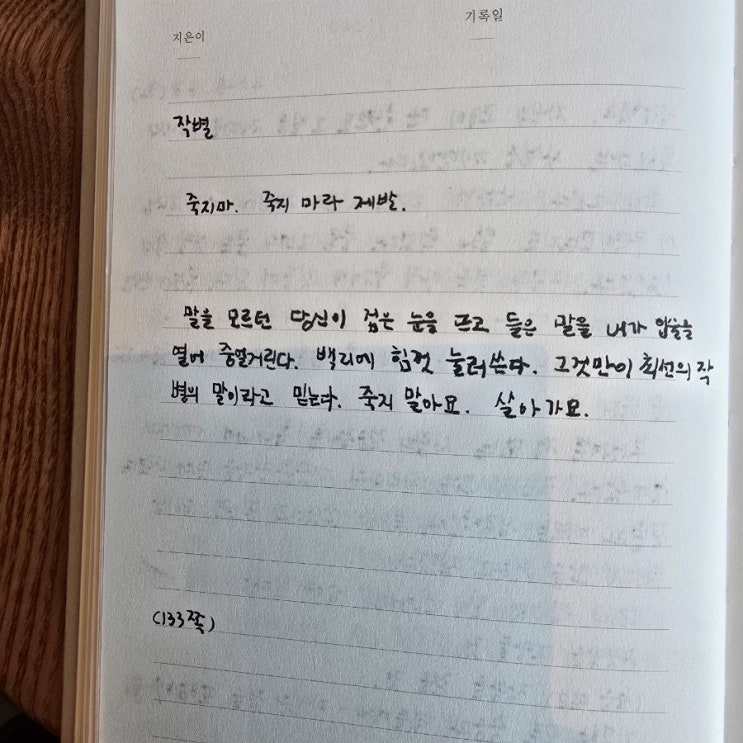 기록일
지은이
작별
죽지마. 죽지 마라 제발.
말을 모르던 당신이 검은 눈을 뜨고 들은 말을 내가 입술을
열어 중얼거린다. 백리에 힘껏 눌러쓴다. 그것만이 최선의 작
별의 말이라고 믿는다. 죽지 말아요. 살아가요.
(133쪽)